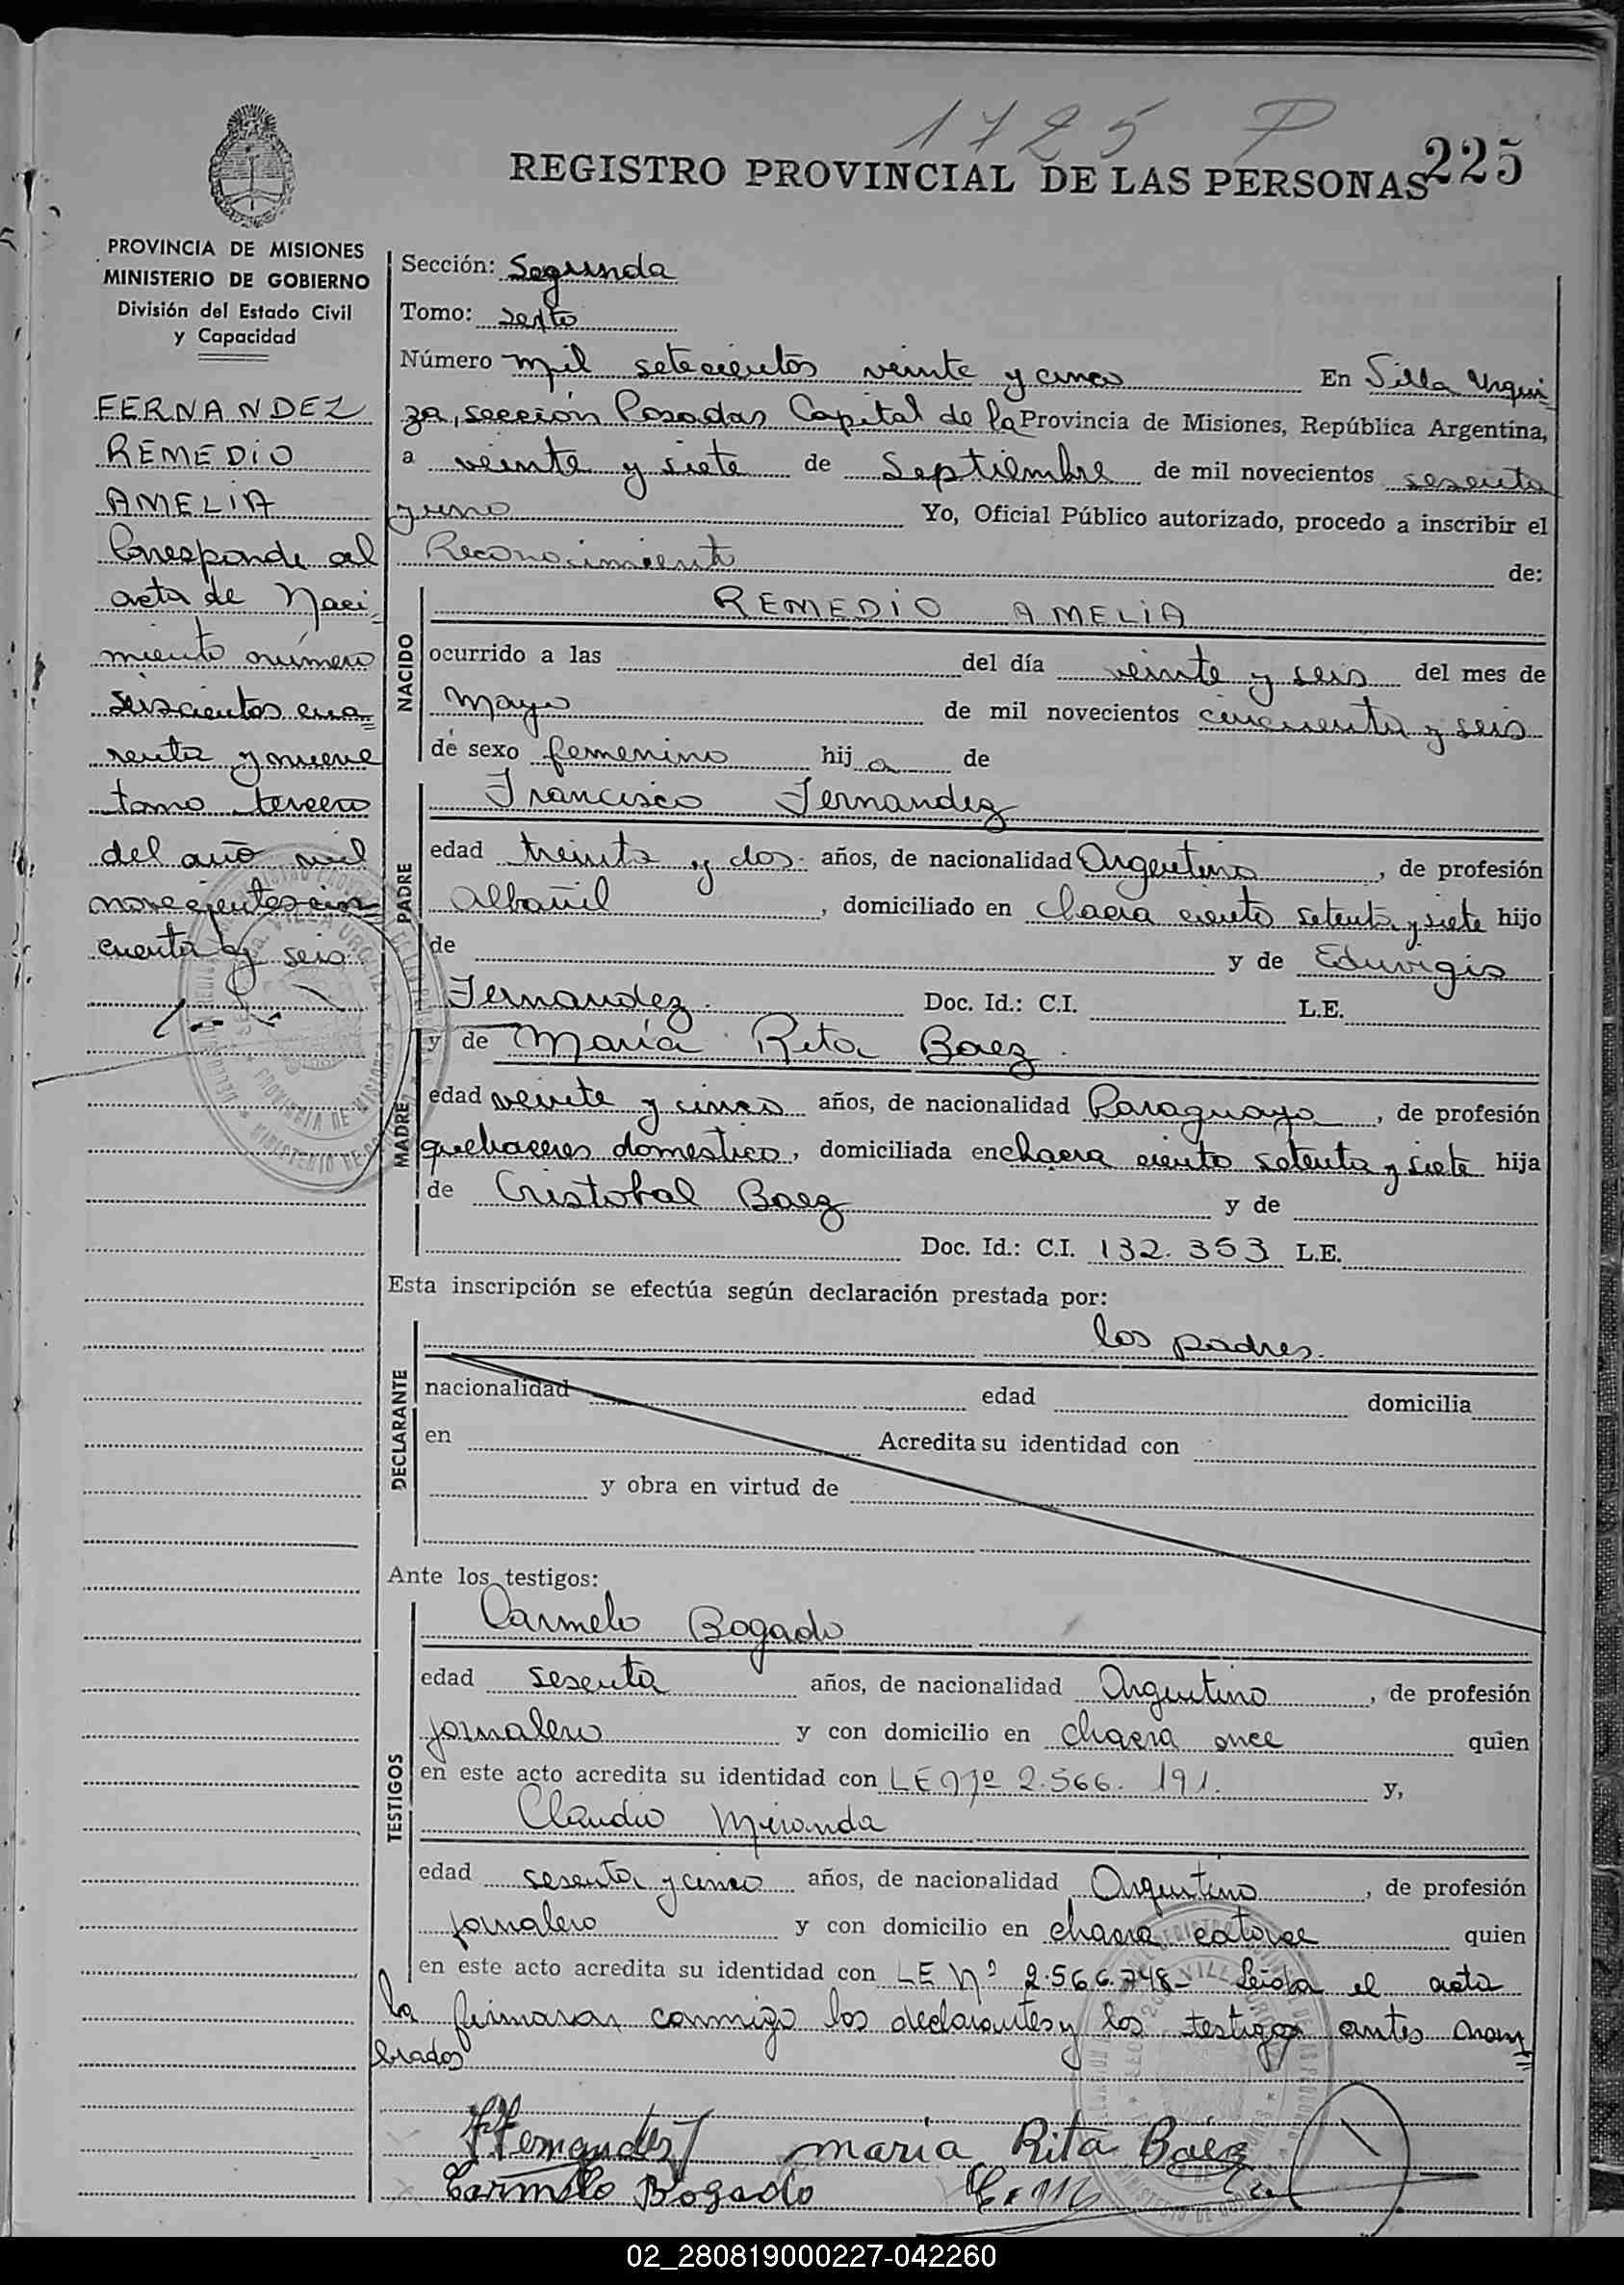 1725 P
REGISTRO PROVINCIAL DE LAS PERSONAS 225
PROVINCIA DE MISIONES
MINISTERIO DE GOBIERNO
División del Estado Civil
y Capacidad
FERNANDEZ
REMEDIO
AMELIA
Corresponde al
acta de Naci
miento número
seiscientos cua=
renta y nueve
tomo tercero
del año mil
novecientos cin
cuenta y seis
Sección: Segunda
Tomo: sexto
Número mil setecientos veinte y cinco En Villa Urqui
za, sección Posadas Capital de la Provincia de Misiones, República Argentina,
a veinte y siete de Septiembre de mil novecientos sesenta
y uno Yo, Oficial Público autorizado, procedo a inscribir el
Reconocimiento de:
NACIDO
REMEDIO AMELIA
ocurrido a las del día veinte y seis del mes de
mayo de mil novecientos cincuenta y seis
de sexo femenino hij a de
PADRE
Francisco Fernandez
edad treinta y dos años, de nacionalidad Argentino, de profesión
Albañil, domiciliado en chacra ciento setenta y siete hijo
de y de Eduvigis
Fernandez. Doc. Id.: C.I. L.E.
MADRE
y de María Rita Baez.
edad veinte y cinco años, de nacionalidad Paraguaya, de profesión
quehaceres domestico, domiciliada en chacra ciento setenta y siete hija
de Cristobal Baez y de
Doc. Id.: C.I. 132.353 L.E.
Esta inscripción se efectúa según declaración prestada por:
DECLARANTE
los padres.
nacionalidad edad domicilia
en Acredita su identidad con
y obra en virtud de
Ante los testigos:
TESTIGOS
Carmelo Bogado
edad sesenta años, de nacionalidad Argentino, de profesión
jornalero y con domicilio en chacra once quien
en este acto acredita su identidad con LE Nº 2.566.191. y,
Claudio Miranda
edad sesenta y cinco años, de nacionalidad Argentino, de profesión
jornalero y con domicilio en chacra catorce quien
en este acto acredita su identidad con LE Nº 2.566.748- Leída el acta
la firmaran conmigo los declarantes y los testigos antes nom
brados
Fernandez María Rita Baéz
Carmelo Bogado
02_280819000227-042260